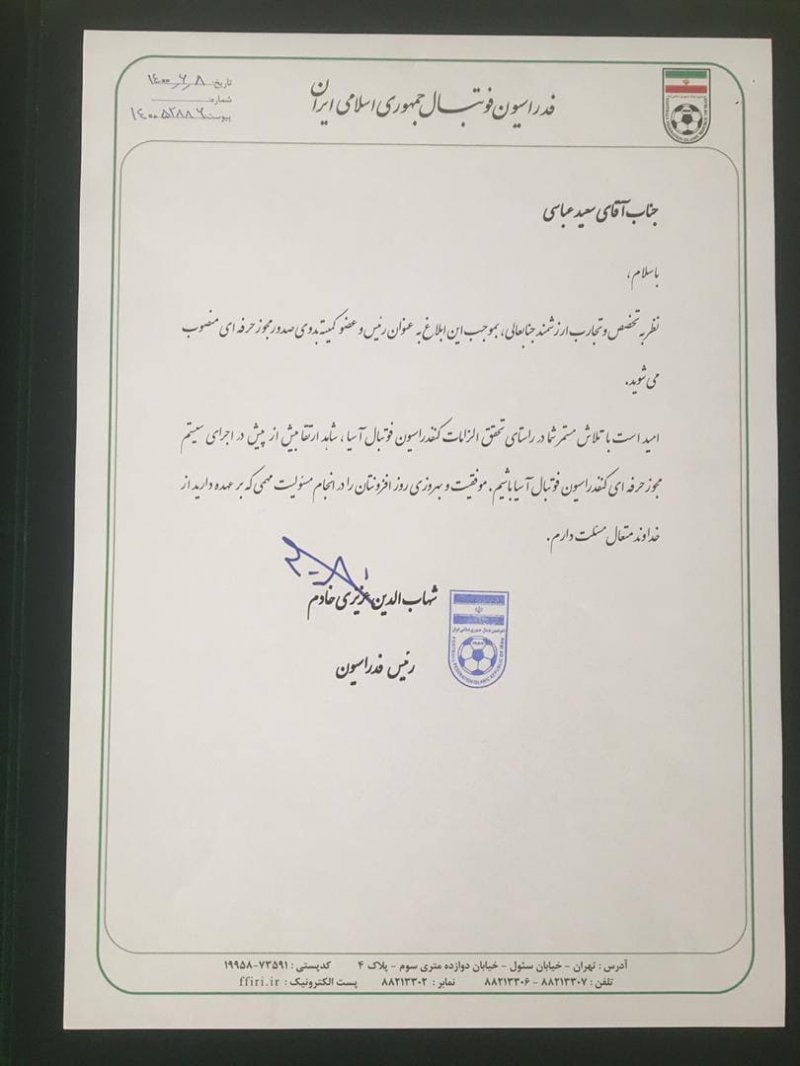 فدراسیون فوتبال جمهوری اسلامی ایران
تاریخ: ۱۴۰۰٫۶٫۸
شماره:
پیوست: ۱۴۰۰۵۲۸۸۶
جناب آقای سعید عباسی
باسلام،
نظر به تخصص و تجارب ارزشمند جنابعالی، بموجب این ابلاغ به عنوان رئیس و عضو کمیته بدوی صدور مجوز حرفه ای منصوب
می شوید.
امید است با تلاش مستمر شما در راستای تحقق الزامات کنفدراسیون فوتبال آسیا، شاهد ارتقا بیش از پیش در اجرای سیستم
مجوز حرفه ای کنفدراسیون فوتبال آسیا باشیم. موفقیت و بهروزی روز افزونتان را در انجام مسئولیت مهمی که بر عهده دارید از
خداوند متعال مسئلت دارم.
شهاب الدین عزیزی خادم
رئیس فدراسیون
FOOTBALL FEDERATION ISLAMIC REPUBLIC OF IRAN
آدرس : تهران - خیابان سئول - خیابان دوازده متری سوم - پلاک ۴ کدپستی : ۷۳۵۹۱-۱۹۹۵۸
تلفن : ۸۸۲۱۳۳۰۷ - ۸۸۲۱۳۳۰۶ نمابر : ۸۸۲۱۳۳۰۲ پست الکترونیک : ffiri.ir